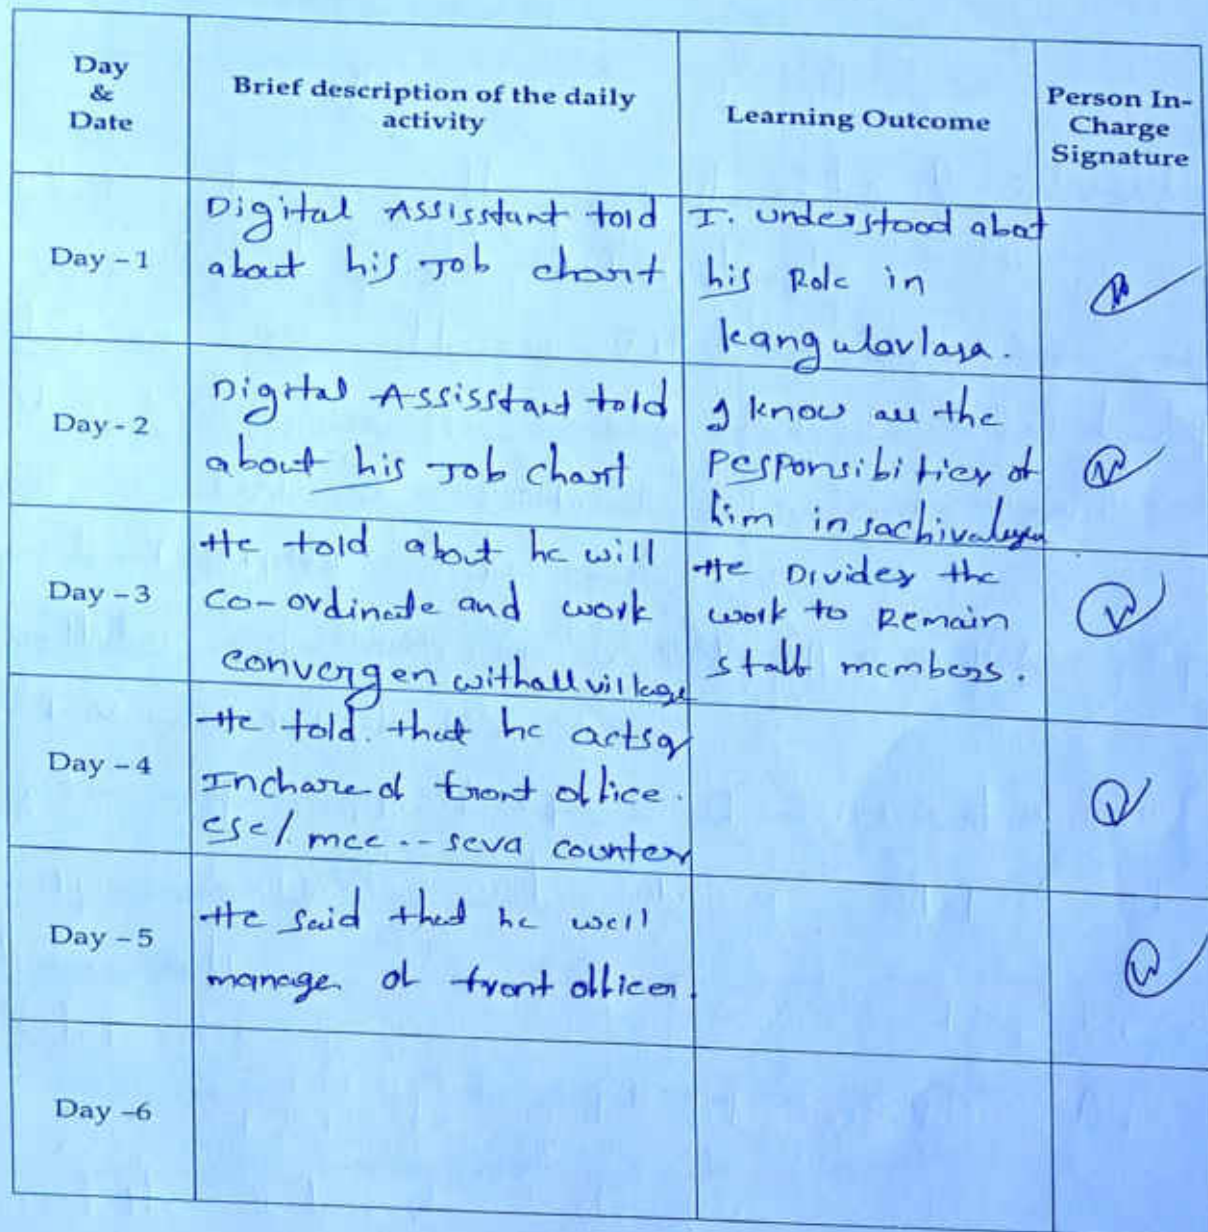 Day
&
Date
Brief description of the daily
activity
Learning Outcome
Person In-
Charge
Signature
Day – 1
Digital Assisstant told
about his Job chart
I. understood abot
his Role in
kangulavlasa.
Day - 2
Digital Assisstant told
about his Job chart
I know all the
Responsibities of
him in sachivalaya
Day – 3
He told about he will
co-ordinate and work
convergen with all village
He Divides the
work to Remain
staff members.
Day – 4
He told. that he acts as
Inchare of front office.
csc/ mee -- seva counter
Day – 5
He said that he will
manage of front officer.
Day –6